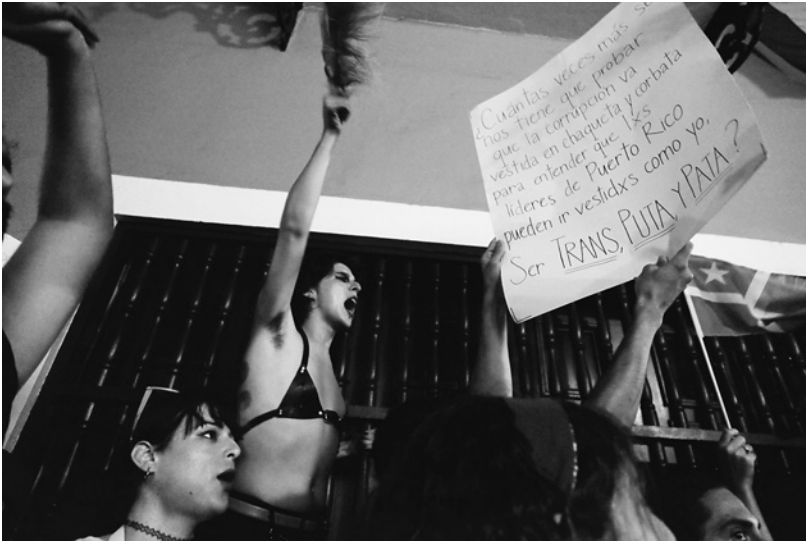 ¿Cuántas veces más se
nos tiene que probar
que la corrupción va
vestida en chaqueta y corbata
para entender que lxs
líderes de Puerto Rico
pueden ir vestidxs como yo,
Ser TRANS, PUTA Y PATA?